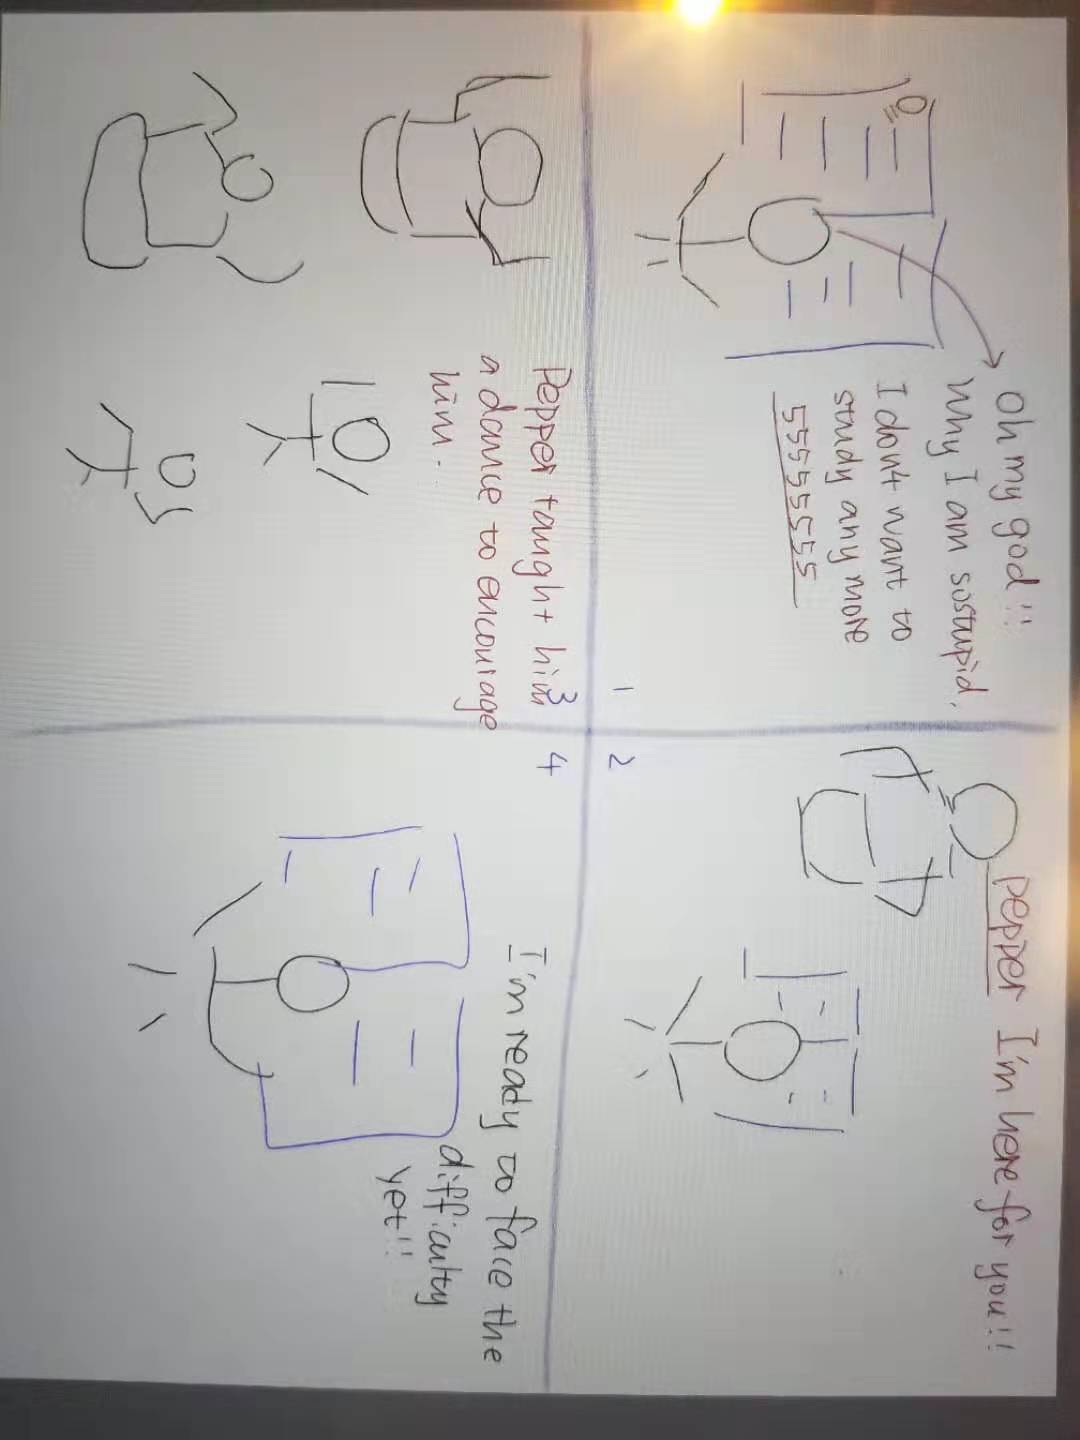 Oh my god!!
Why I am sostupid.
I don4 want to
study any more
55555555
1
pepper I'm here for you!!
2
Pepper taught him
a dance to encourage
him.
3
4
I'm ready to face the
difficulty
yet!!